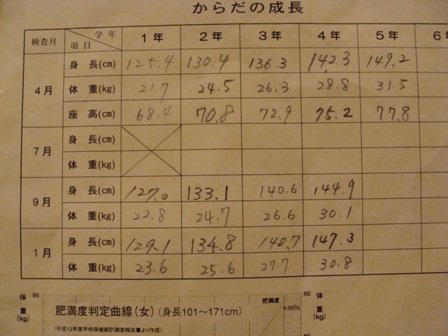 からだの成長
検査月 項目 学年 1年 2年 3年 4年 5年 6
4月 身長(cm) 125.4 130.4 136.3 142.3 149.2
体重(kg) 21.7 24.5 26.3 28.8 31.5
座高(cm) 68.4 70.8 72.9 75.2 77.8
7月 身長(cm)
体重(kg)
9月 身長(cm) 127.0 133.1 140.6 144.9
体重(kg) 22.8 24.7 26.6 30.1
1月 身長(cm) 129.1 134.8 140.7 147.3
体重(kg) 23.6 25.6 27.7 30.8
体重(kg) 90
肥満度判定曲線(女)(身長101~171cm)
(平成12年度学校保健統計調査報告書より作成)
肥満度
+50%
体重 90